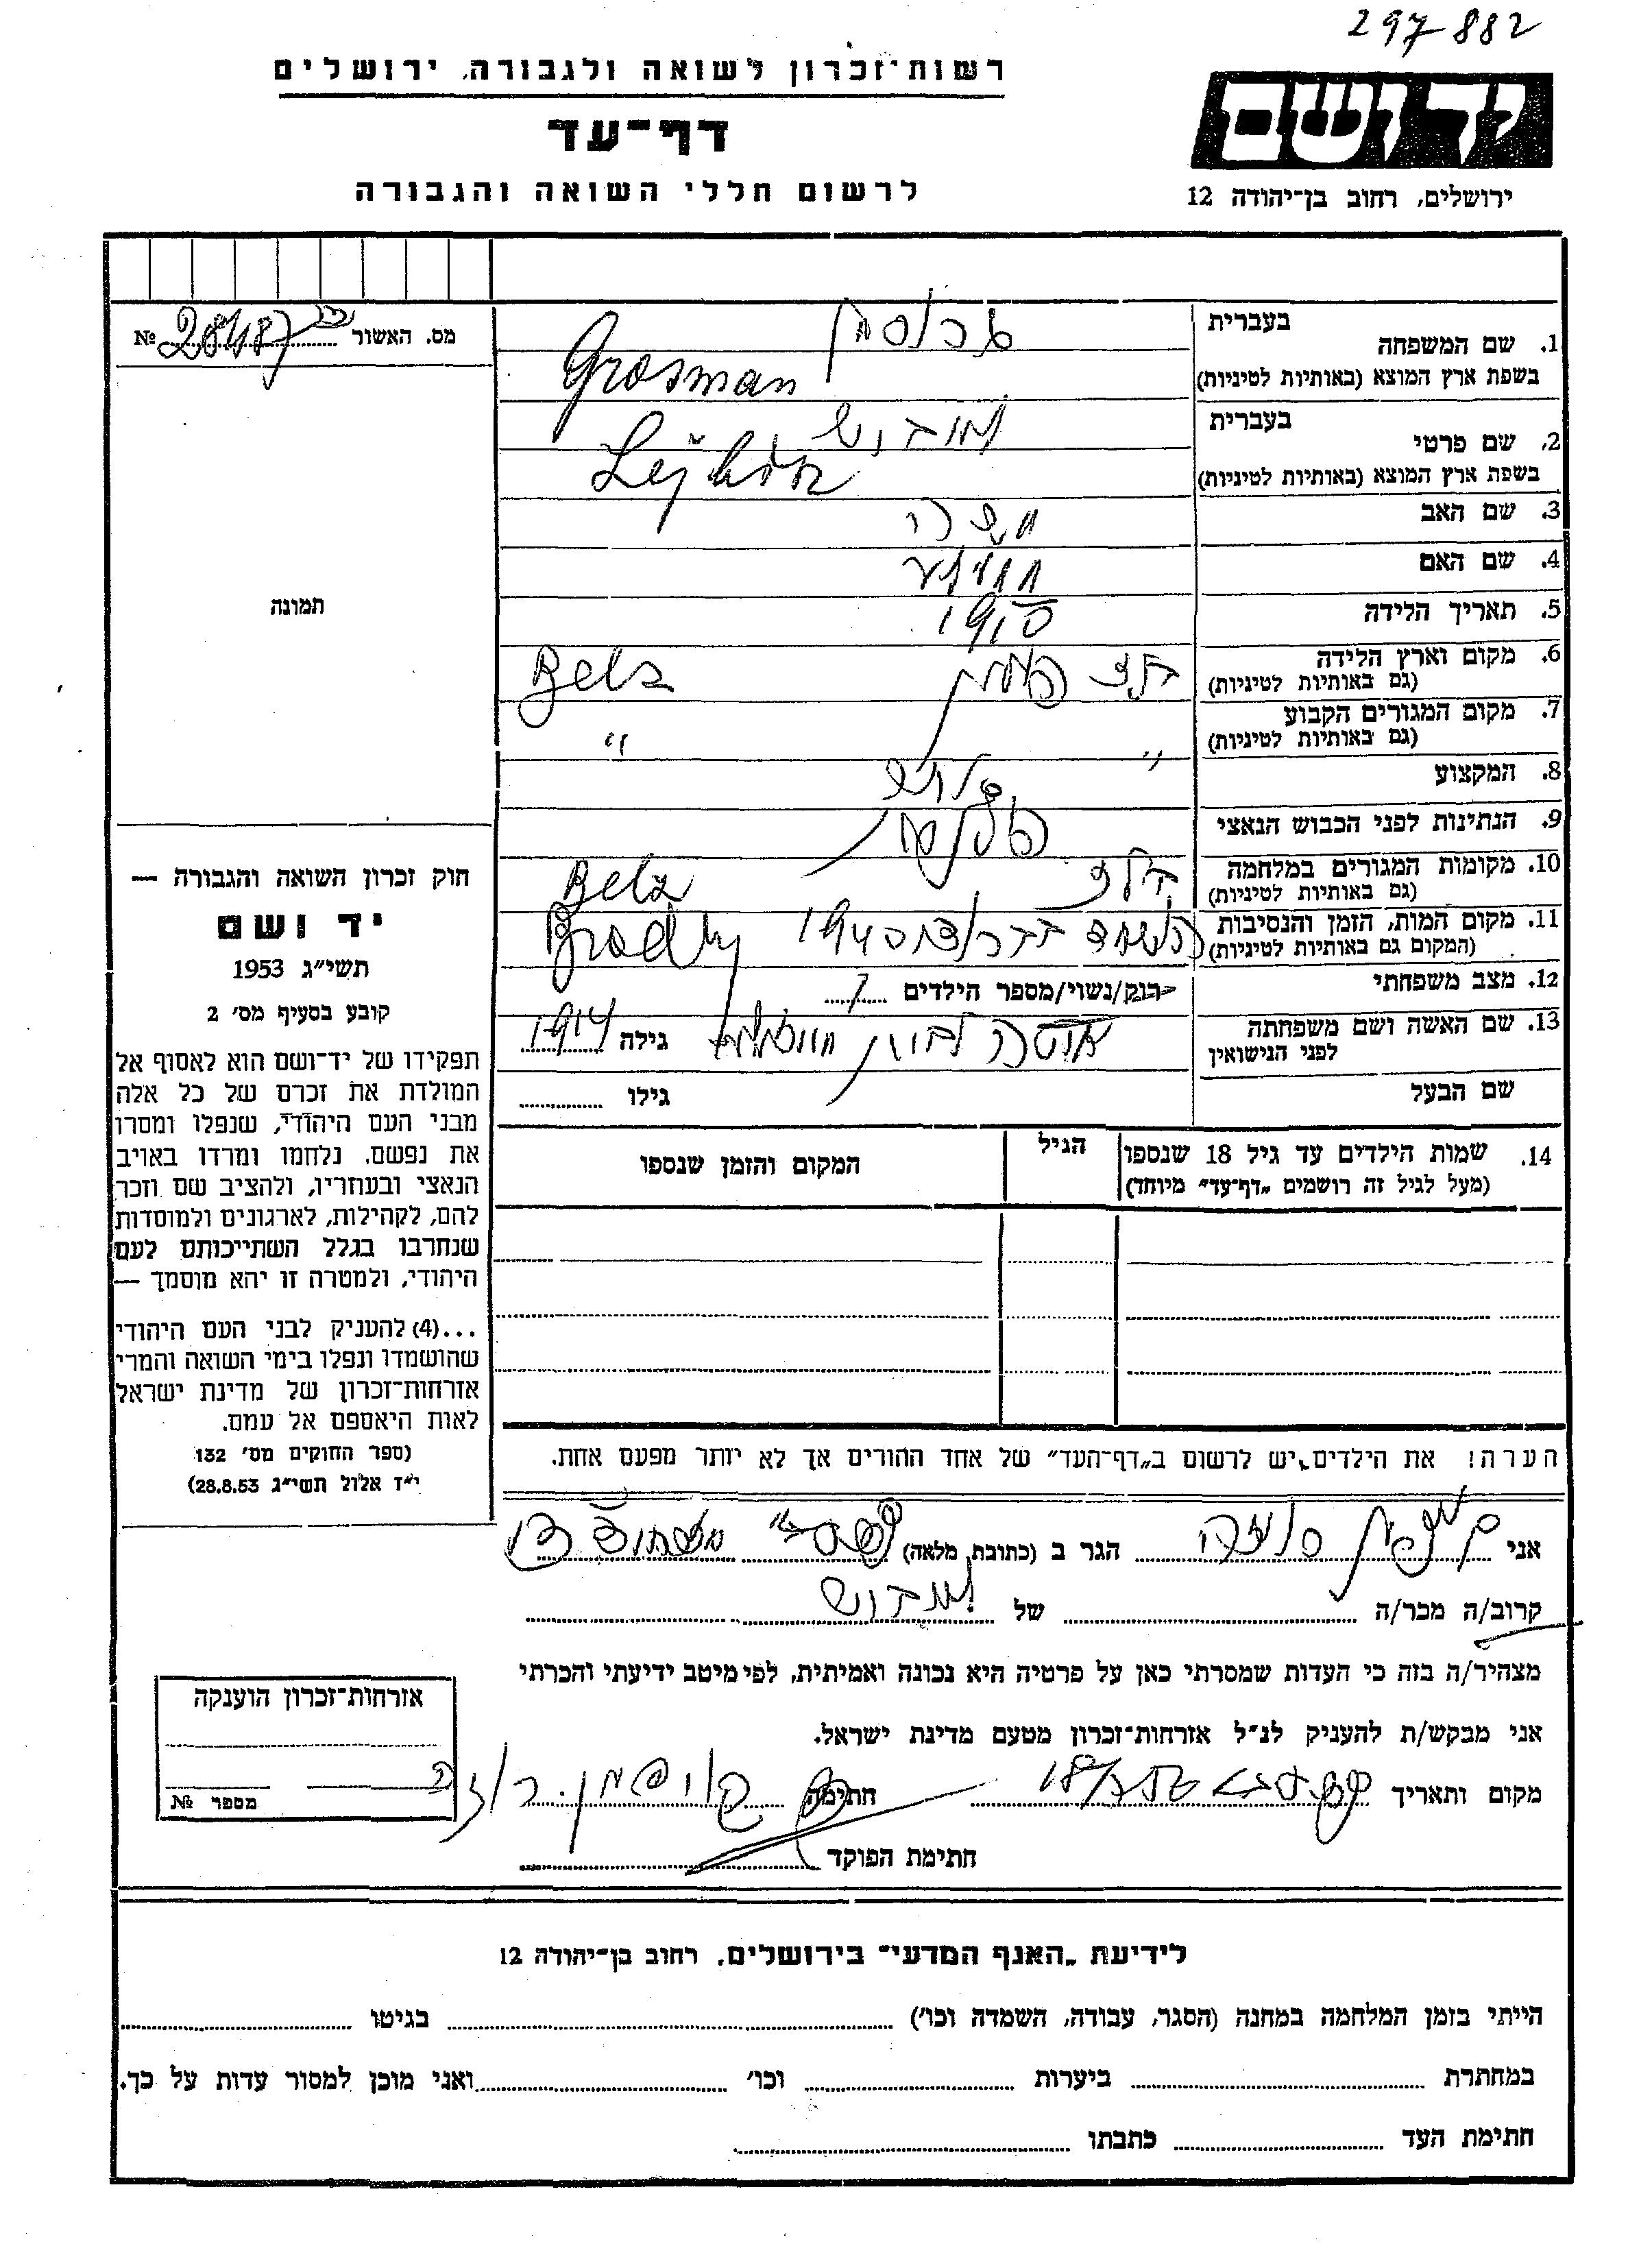 297882
יד ושם
ירושלים, רחוב בן־יהודה 12
רשות־זכרון לשואה ולגבורה, ירושלים
דף־עד
לרשום חללי השואה והגבורה
מס. האשור № 
1. שם המשפחה
בעברית
גרוסמן
בשפת ארץ המוצא (באותיות לטיניות)
Grosman
2. שם פרטי
בעברית
לייבוש
בשפת ארץ המוצא (באותיות לטיניות)
3. שם האב
4. שם האם
5. תאריך הלידה
1910
6. מקום וארץ הלידה
(גם באותיות לטיניות)
בלז פולין Belz
7. מקום המגורים הקבוע
(גם באותיות לטיניות)
" "
8. המקצוע
9. הנתינות לפני הכבוש הנאצי
10. מקומות המגורים במלחמה
(גם באותיות לטיניות)
בלז Belz
11. מקום המות, הזמן והנסיבות
(המקום גם באותיות לטיניות)
Brody
12. מצב משפחתי
רוק/נשוי/מספר הילדים 1
13. שם האשה ושם משפחתה
לפני הנישואין
גילה 1914
שם הבעל
גילו
14. שמות הילדים עד גיל 18 שנספו
(מעל לגיל זה רושמים "דף־עד" מיוחד)
הגיל
המקום והזמן שנספו
הערה! את הילדים יש לרשום ב"דף־העד" של אחד ההורים אך לא יותר מפעם אחת.
תמונה
חוק זכרון השואה והגבורה —
יד ושם
תשי"ג 1953
קובע בסעיף מס' 2
תפקידו של יד־ושם הוא לאסוף אל
המולדת את זכרם של כל אלה
מבני העם היהודי, שנפלו ומסרו
את נפשם, נלחמו ומרדו באויב
הנאצי ובעוזריו, ולהציב שם וזכר
להם, לקהילות, לארגונים ולמוסדות
שנחרבו בגלל השתייכותם לעם
היהודי, ולמטרה זו יהא מוסמך —
...(4) להעניק לבני העם היהודי
שהושמדו ונפלו בימי השואה והמרי
אזרחות־זכרון של מדינת ישראל
לאות היאספם אל עמם.
(ספר החוקים מס' 132
י"ז אלול תשי"ג 28.8.53)
אני הגר ב (כתובת מלאה)
קרוב/ה מכר/ה של לייבוש
מצהיר/ה בזה כי העדות שמסרתי כאן על פרטיה היא נכונה ואמיתית, לפי מיטב ידיעתי והכרתי
אני מבקש/ת להעניק לנ"ל אזרחות־זכרון מטעם מדינת ישראל.
מקום ותאריך חתימה
חתימת הפוקד
אזרחות־זכרון הוענקה
מספר №
לידיעת "האגף המדעי" בירושלים, רחוב בן־יהודה 12
הייתי בזמן המלחמה במחנה (הסגר, עבודה, השמדה וכו') בגיטו
במחתרת ביערות וכו' ואני מוכן למסור עדות על כך.
חתימת העד כתבתו